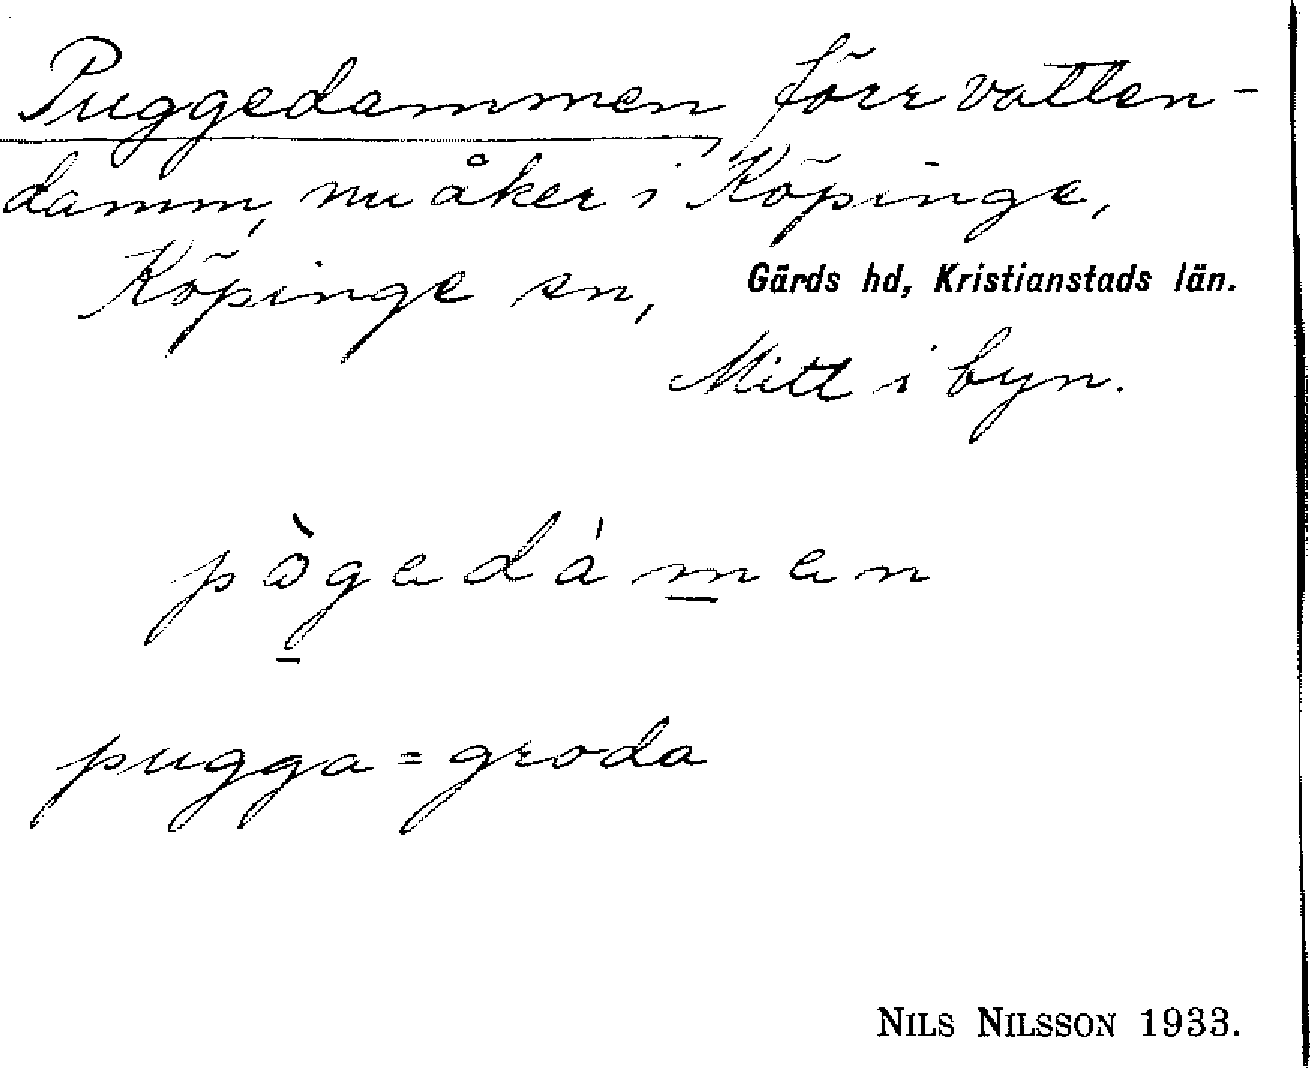 Puggedammen förr vatten-
damm, nu åker i Köpinge,
Köpinge sn, Gärds hd, Kristianstads län.
Mitt i byn.
pò̀gedámen
pugga = groda
NILS NILSSON 1933.